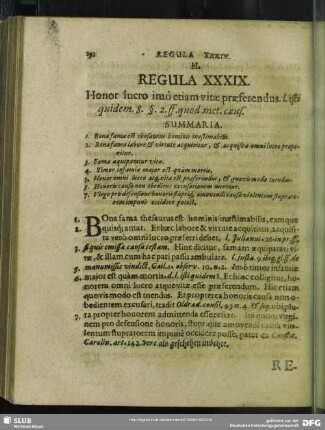 292 REGULA XXXIX.
H.
REGULA XXXIX.
Honor lucro imò etiam vitæ præferendus. l. isti
quidem. 8. §. 2. ff. quod met. caus.
SUMMARIA.
1. Bona fama est thesaurus hominis inæstimabilis.
2. Bona fama labore & virtute acquiritur, & acquisita omni lucro præpo-
nitur.
3. Fama æquiparatur vitæ.
4. Timor infamiæ major est quàm mortis.
5. Honor omni lucro ac vita est præferendus, & quovis modo tuendus.
6. Honoris causa non obediens excusationem meretur.
7. Virgo pro defensione honoris stupri, amovendi causa violentum stuprato-
rem impunè occidere potest.
1. Bona fama thesaurus est hominis inæstimabilis, eamque
2. quisq; amat. Et hæc labore & virtute acquiritur, acquisi-
ta verò omni lucro præferri debet.
3. & quis omissa causa testam. Hinc dicitur, famam æquiparari vi-
4. tæ, & illam cum hac pari passu ambulare. l. justa. 9. ibiq; gloss. de
5. manumissis vindict. Gail. 2. observ. Imò timor infamiæ
6. major est quàm mortis. d. l. isti quidem 8. Et hinc colligitur, ho-
norem omni lucro atque vitæ esse præferendum. Hic etiam
quovis modo est tuendus. Et propterea honoris causa non o-
bedientem excusari, tradit
7. ra propter honorem admittenda esse refert. virgi-
nem pro defensione honoris, stuprique amovendi causa vio-
lentum stupratorem impunè occidere posse, patet ex Constit.
Carolin. art. 142. vers. als geschehen möchte.
RE-
SLUB
Wir führen Wissen.
gefördert von der
Deutschen Forschungsgemeinschaft
DFG